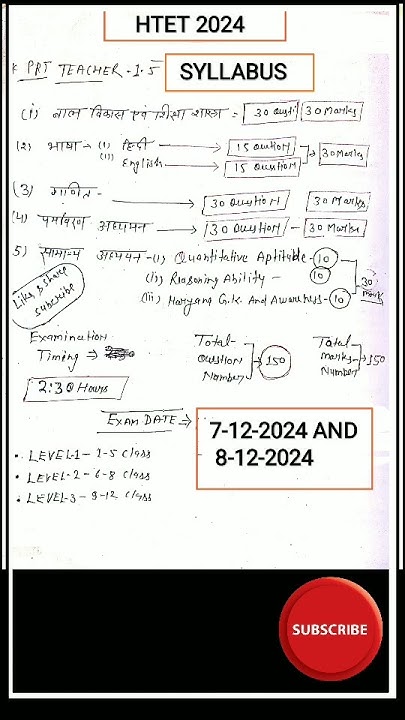 HTET 2024
* PRT TEACHER - 1-5 SYLLABUS
(i) बाल विकास एवं शिक्षा शास्त्र = 30 Questi 30 Marks
(2) भाषा - (i) हिंदी → 15 Question
(ii) English → 15 Question 30 Marks
(3) गणित - → 30 Question 30 Marks
(4) पर्यावरण अध्ययन → 30 Question - 30 Marks
5) सामान्य अध्ययन - (i) Quantitative Aptitude - 10
(ii) Reasoning Ability - 10 30 Mark
(iii) Haryana G.K And Awareness - 10
Like, & share
subscribe
Examination
Timing ⇒
2:30 Hours
Total -
Question
Number → 150
Total
Marks
Number → 150
EXAM DATE ⇒ 7-12-2024 AND
8-12-2024
• LEVEL-1 - 1-5 Class
• LEVEL-2 - 6-8 Class
• LEVEL-3 - 9-12 Class
SUBSCRIBE